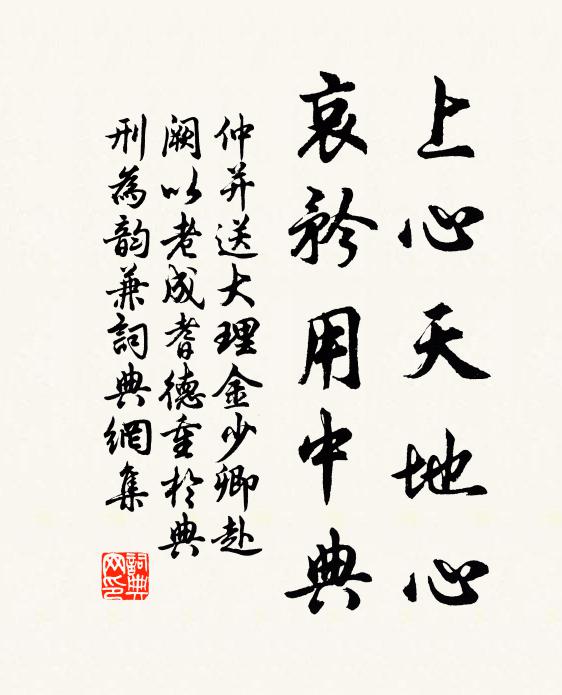 上心天地心
哀矜用中典
仲并送大理金少卿赴
阙以老成耆德重於典
刑為韵兼詞典網集
詞典
网印